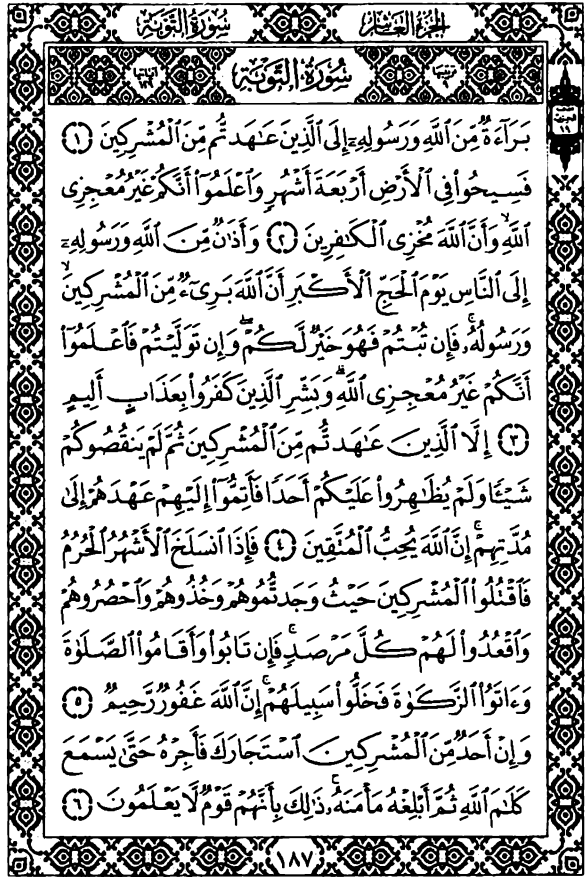 سُورَةُ التَّوْبَةِ
الجُزْءُ العَاشِرُ
سُورَةُ التَّوْبَةِ
بَرَآءَةٌ مِّنَ ٱللَّهِ وَرَسُولِهِۦٓ إِلَى ٱلَّذِينَ عَٰهَدتُّم مِّنَ ٱلْمُشْرِكِينَ ۝١
فَسِيحُوا۟ فِى ٱلْأَرْضِ أَرْبَعَةَ أَشْهُرٍ وَٱعْلَمُوٓا۟ أَنَّكُمْ غَيْرُ مُعْجِزِى
ٱللَّهِ ۙ وَأَنَّ ٱللَّهَ مُخْزِى ٱلْكَٰفِرِينَ ۝٢ وَأَذَٰنٌ مِّنَ ٱللَّهِ وَرَسُولِهِۦٓ
إِلَى ٱلنَّاسِ يَوْمَ ٱلْحَجِّ ٱلْأَكْبَرِ أَنَّ ٱللَّهَ بَرِىٓءٌ مِّنَ ٱلْمُشْرِكِينَ ۙ
وَرَسُولُهُۥ ۚ فَإِن تُبْتُمْ فَهُوَ خَيْرٌ لَّكُمْ ۖ وَإِن تَوَلَّيْتُمْ فَٱعْلَمُوٓا۟
أَنَّكُمْ غَيْرُ مُعْجِزِى ٱللَّهِ ۗ وَبَشِّرِ ٱلَّذِينَ كَفَرُوا۟ بِعَذَابٍ أَلِيمٍ
۝٣ إِلَّا ٱلَّذِينَ عَٰهَدتُّم مِّنَ ٱلْمُشْرِكِينَ ثُمَّ لَمْ يَنقُصُوكُمْ
شَيْـًٔا وَلَمْ يُظَٰهِرُوا۟ عَلَيْكُمْ أَحَدًا فَأَتِمُّوٓا۟ إِلَيْهِمْ عَهْدَهُمْ إِلَىٰ
مُدَّتِهِمْ ۚ إِنَّ ٱللَّهَ يُحِبُّ ٱلْمُتَّقِينَ ۝٤ فَإِذَا ٱنسَلَخَ ٱلْأَشْهُرُ ٱلْحُرُمُ
فَٱقْتُلُوا۟ ٱلْمُشْرِكِينَ حَيْثُ وَجَدتُّمُوهُمْ وَخُذُوهُمْ وَٱحْصُرُوهُمْ
وَٱقْعُدُوا۟ لَهُمْ كُلَّ مَرْصَدٍ ۚ فَإِن تَابُوا۟ وَأَقَامُوا۟ ٱلصَّلَوٰةَ
وَءَاتَوُا۟ ٱلزَّكَوٰةَ فَخَلُّوا۟ سَبِيلَهُمْ ۚ إِنَّ ٱللَّهَ غَفُورٌ رَّحِيمٌ ۝٥
وَإِنْ أَحَدٌ مِّنَ ٱلْمُشْرِكِينَ ٱسْتَجَارَكَ فَأَجِرْهُ حَتَّىٰ يَسْمَعَ
كَلَٰمَ ٱللَّهِ ثُمَّ أَبْلِغْهُ مَأْمَنَهُۥ ۚ ذَٰلِكَ بِأَنَّهُمْ قَوْمٌ لَّا يَعْلَمُونَ ۝٦
١٨٧